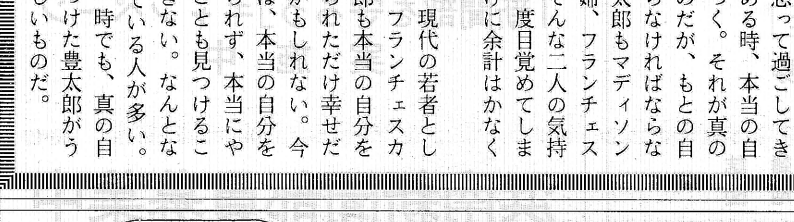 思って過ごしてき
ある時、本当の自
つく。それが真の
のだが、もとの自
らなければならな
太郎もマディソン
婦、フランチェス
そんな二人の気持
度目覚めてしま
けに余計はかなく
現代の若者とし
フランチェスカ
郎も本当の自分を
られただけ幸せだ
かもしれない。今
は、本当の自分を
られず、本当にや
ことも見つけるこ
きない。なんとな
ている人が多い。
時でも、真の自
つけた豊太郎がう
しいものだ。